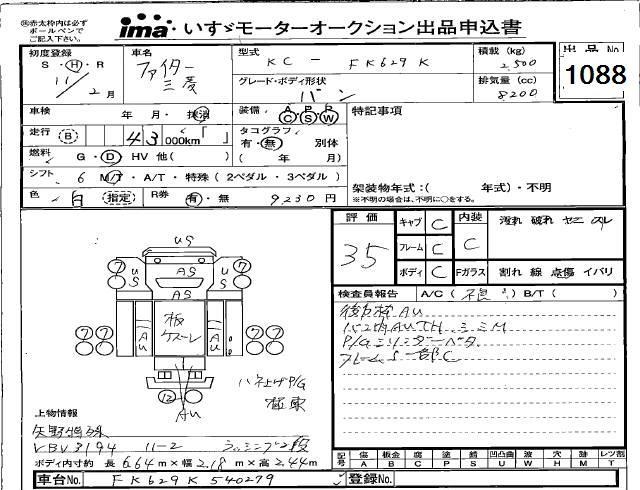 ※赤太枠内は必ず
ボールペンで
ご記入下さい。
ima いすゞモーターオークション出品申込書
出品No
1088
初度登録
S・H・R
11/2月
車名
ファイター
三菱
型式
KC - FK629K
積載(kg)
2,500
グレード・ボディ形状
バン
排気量(cc)
8200
車検 年 月・抹消
装備 A P R
C S W
特記事項
走行 B 43 000km
タコグラフ
有・無 別体
( 年 月)
燃料 G・D HV 他( )
シフト 6 M/T・A/T・特殊(2ペダル・3ペダル)
架装物年式:( 年式)・不明
※不明の場合は、不明に○をする。
色 白 (指定) R券 有・無 9,230円
評価
35
キャブ C
フレーム C
ボディ C
内装
C
Fガラス
汚れ 破れ ヤニ スレ
割れ 線 点傷 イバリ
検査員報告 A/C( 不良 ) B/T( )
AU
P/Gシリンダーベタ
フレームS一部C
US
AS
US
US
AS
AU
板
AU
ハネ上げP/G
極東
AU
上物情報
矢野特殊
VBV3194 11-2 ラッシング2段
ボディ内寸約 長 6.64m×幅 2.18m×高 2.44m
記号 傷A 板金B 腐C 塗P 錆S 凹凸曲U 波W 穴H 跡M レツ割T
車台No. FK629K 540279 登録No.